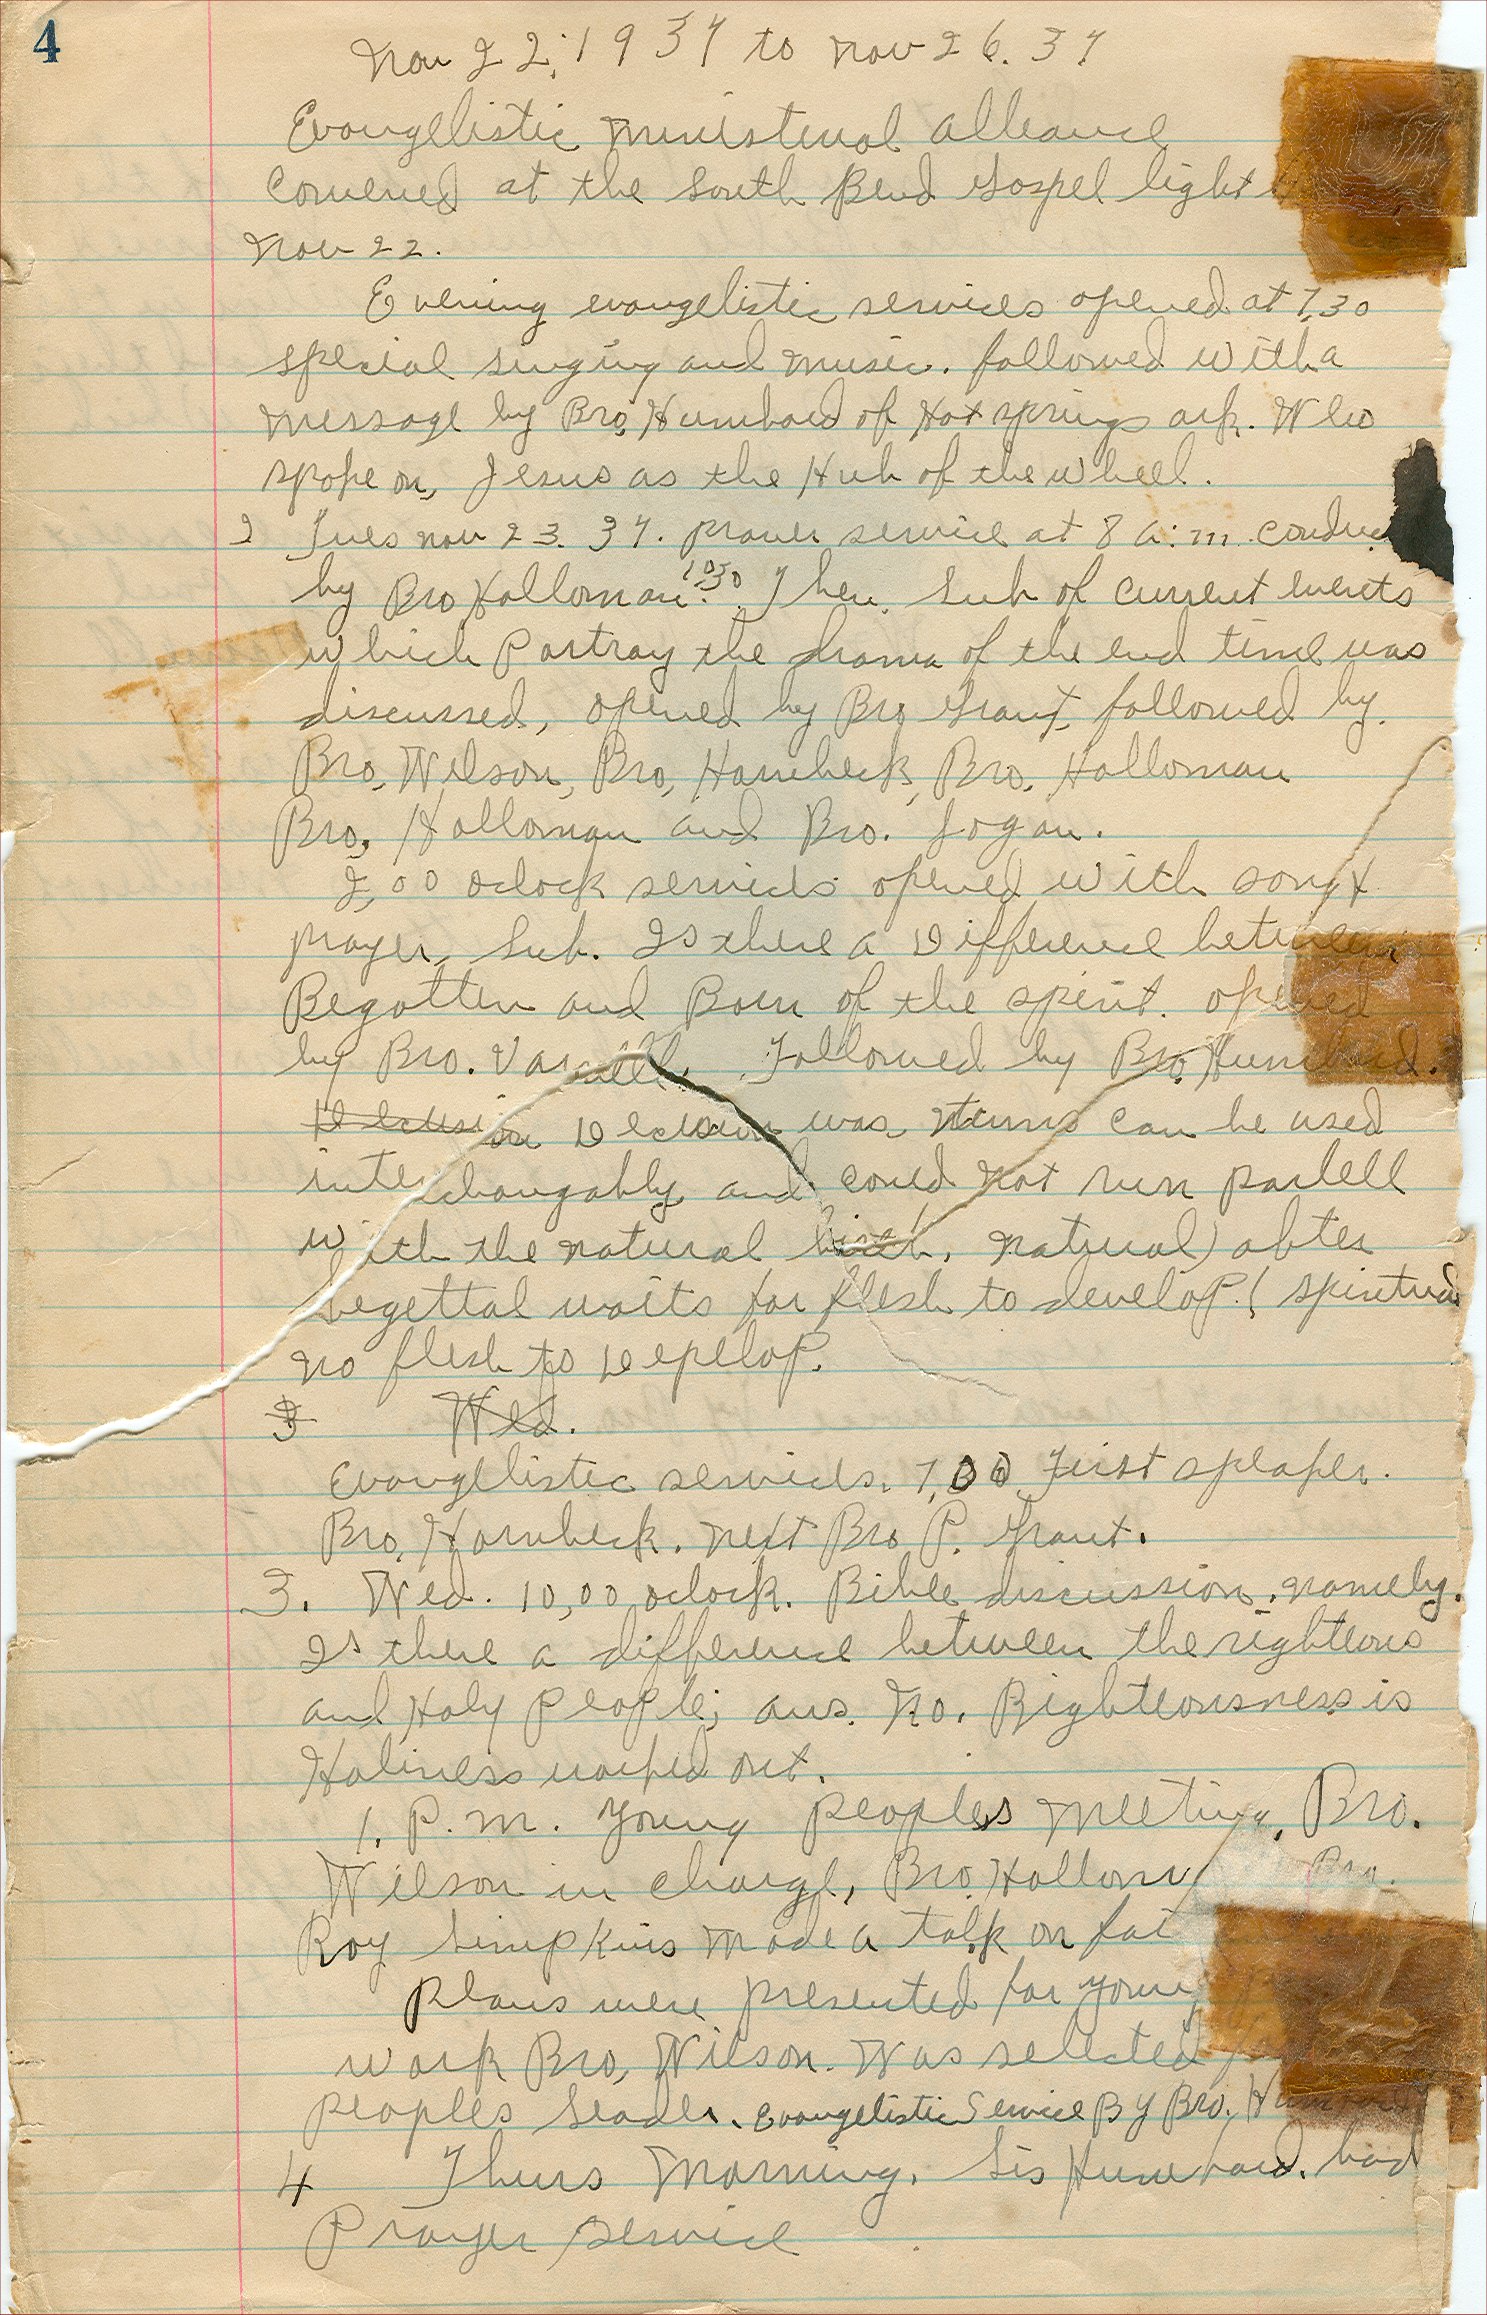 4
Nov 22, 1937 to Nov 26. 37
Evangelistic Ministerial Alleance
Convened at the South Bend Gospel light
Nov 22.
Evening evangelistic services opened at 7,30
special singing and music. followed with a
message by Bro, Humbard of Hot springs ark. Who
spoke on, Jesus as the Hub of the wheel.
2 Tues nov 23. 37. prayer service at 8 a.m. conduc
by Bro Holloman. 10:30 Then. Sub of current events
which Portray the drama of the end time was
discussed, opened by Bro Grant, followed by
Bro, Wilson, Bro, Hornbeck, Bro, Holloman
Bro, Holloman and Bro. Logan.
2,00 oclock services opened with song &
prayer, Sub. Is there a Difference between
Begotten and Born of the spirit. opened
by Bro. Followed by Bro, Humbard.
Decision Decision was, terms can be used
interchangably and could not run parlell
with the natural birth, natural) after
begettal waits for flesh to develop. ( spiritual
no flesh to Develop.
3 Wed.
Evangelistic services. 7,00 First speaker.
Bro, Hornbeck. next Bro P. Grant.
3. Wed. 10,00 oclock. Bible discussion, namely.
Is there a difference between the righteous
and Holy People; ans. No. Righteousness is
Holiness worked out.
1. P.m. Young peoples meeting, Bro.
Wilson in charge, Bro Hollom Bro.
Roy Simpkins made a talk on fai
Plans were presented for young
work Bro, Wilson. Was selected
peoples leader. Evangelistic Service By Bro, Humbard
4 Thurs morning. Sis Humbard. had
Prayer service